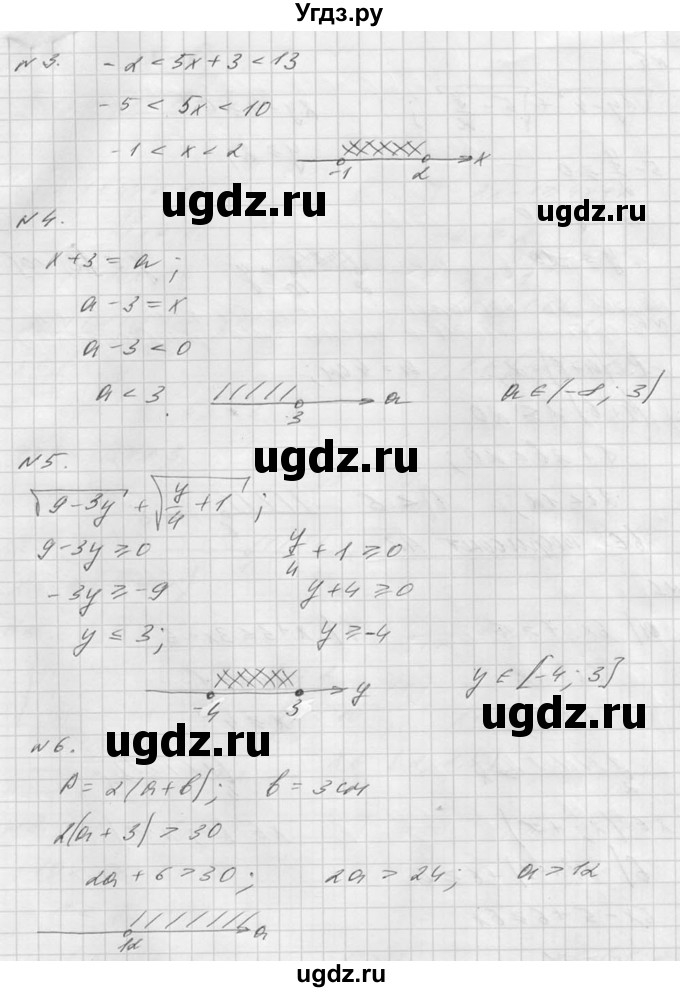 Угдз.ру
№3. -2 < 5x + 3 < 13
-5 < 5x < 10
-1 < x < 2
-1 2 x
ugdz.ru ugdz.ru
№4.
x + 3 = a;
a - 3 = x
a - 3 < 0
a < 3 3 a a ∈ (-∞; 3)
ugdz.ru
№5.
√(9-3y) + √(y/4 + 1);
9-3y ≥ 0 y/4 + 1 ≥ 0
-3y ≥ -9 y+4 ≥ 0
y ≤ 3; y ≥ -4
-4 3 y y ∈ [-4; 3]
ugdz.ru ugdz.ru
№6.
P = 2(a+b); b = 3см
2(a + 3) > 30
2a + 6 > 30; 2a > 24; a > 12
12 a
ugdz.ru